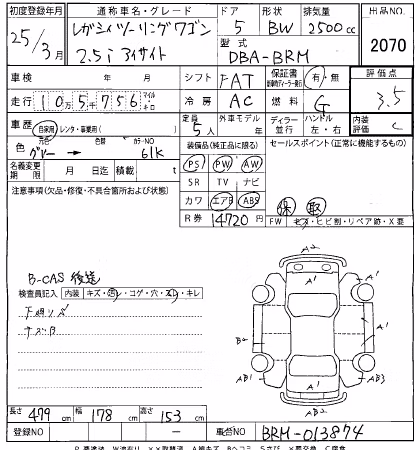 初度登録年月 通称車名・グレード ドア 形状 排気量 出品NO.
25/3月 レガシィツーリングワゴン 5 BW 2500cc 2070
2.5i アイサイト 型式 DBA-BRM
車検 年 月 シフト FAT 保証書 有・無 評価点
走行 105756 マイル キロ 冷房 AC 燃料 G 3.5
車歴 自家用 レンタ・事業用( ) 定員 5人 外車モデル 年 ディーラー 並行 ハンドル 左・右 内装評価 C
色 元色 グレー → 色替 カラーNO 61K 装備品(純正品に限る) セールスポイント(正常に機能するもの)
名義変更期限 月 日迄 積載 t PS PW AW
注意事項(欠品・修復・不具合箇所および状態) SR TV ナビ
カワ エアB ABS 保 取
R券 14720円 FW キズ・ヒビ割・リペア跡・X要
B-CAS後送
検査員記入 内装 キズ・汚れ・コゲ・穴・スレ・キレ
下廻りサビ
A2
A1 A1
A1
B2 A1
AB1 A1 AB3
AB2
長さ 479cm 幅 178cm 高さ 153cm
登録NO - 車台NO BRM-013874